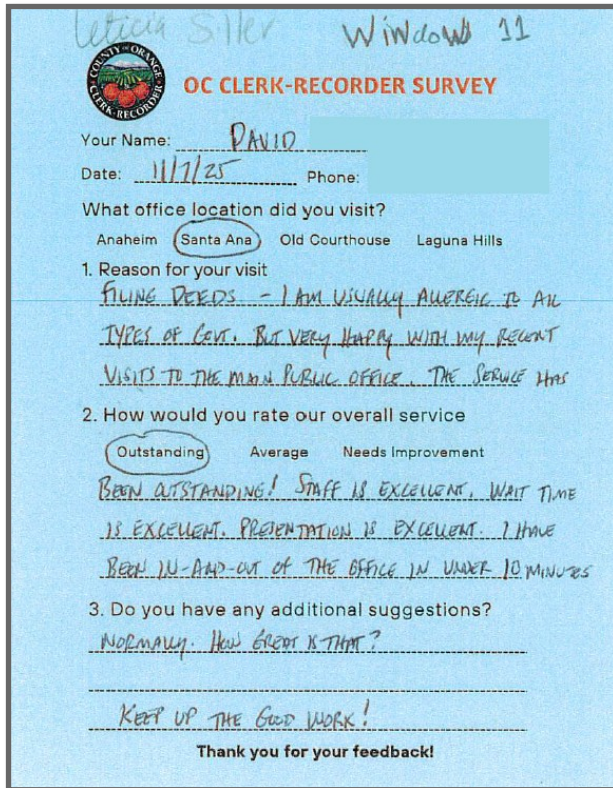 Leticia Siller Window 11
COUNTY OF ORANGE
CLERK-RECORDER
OC CLERK-RECORDER SURVEY
Your Name: DAVID
Date: 11/7/25 Phone:
What office location did you visit?
Anaheim Santa Ana Old Courthouse Laguna Hills
1. Reason for your visit
FILING DEEDS - I AM USUALLY ALLERGIC TO ALL
TYPES OF GOVT. BUT VERY HAPPY WITH MY RECENT
VISITS TO THE MAIN PUBLIC OFFICE. THE SERVICE HAS
2. How would you rate our overall service
Outstanding Average Needs Improvement
BEEN OUTSTANDING! STAFF IS EXCELLENT. WAIT TIME
IS EXCELLENT. PRESENTATION IS EXCELLENT. I HAVE
BEEN IN-AND-OUT OF THE OFFICE IN UNDER 10 MINUTES
3. Do you have any additional suggestions?
NORMALLY. HOW GREAT IS THAT?
KEEP UP THE GOOD WORK!
Thank you for your feedback!